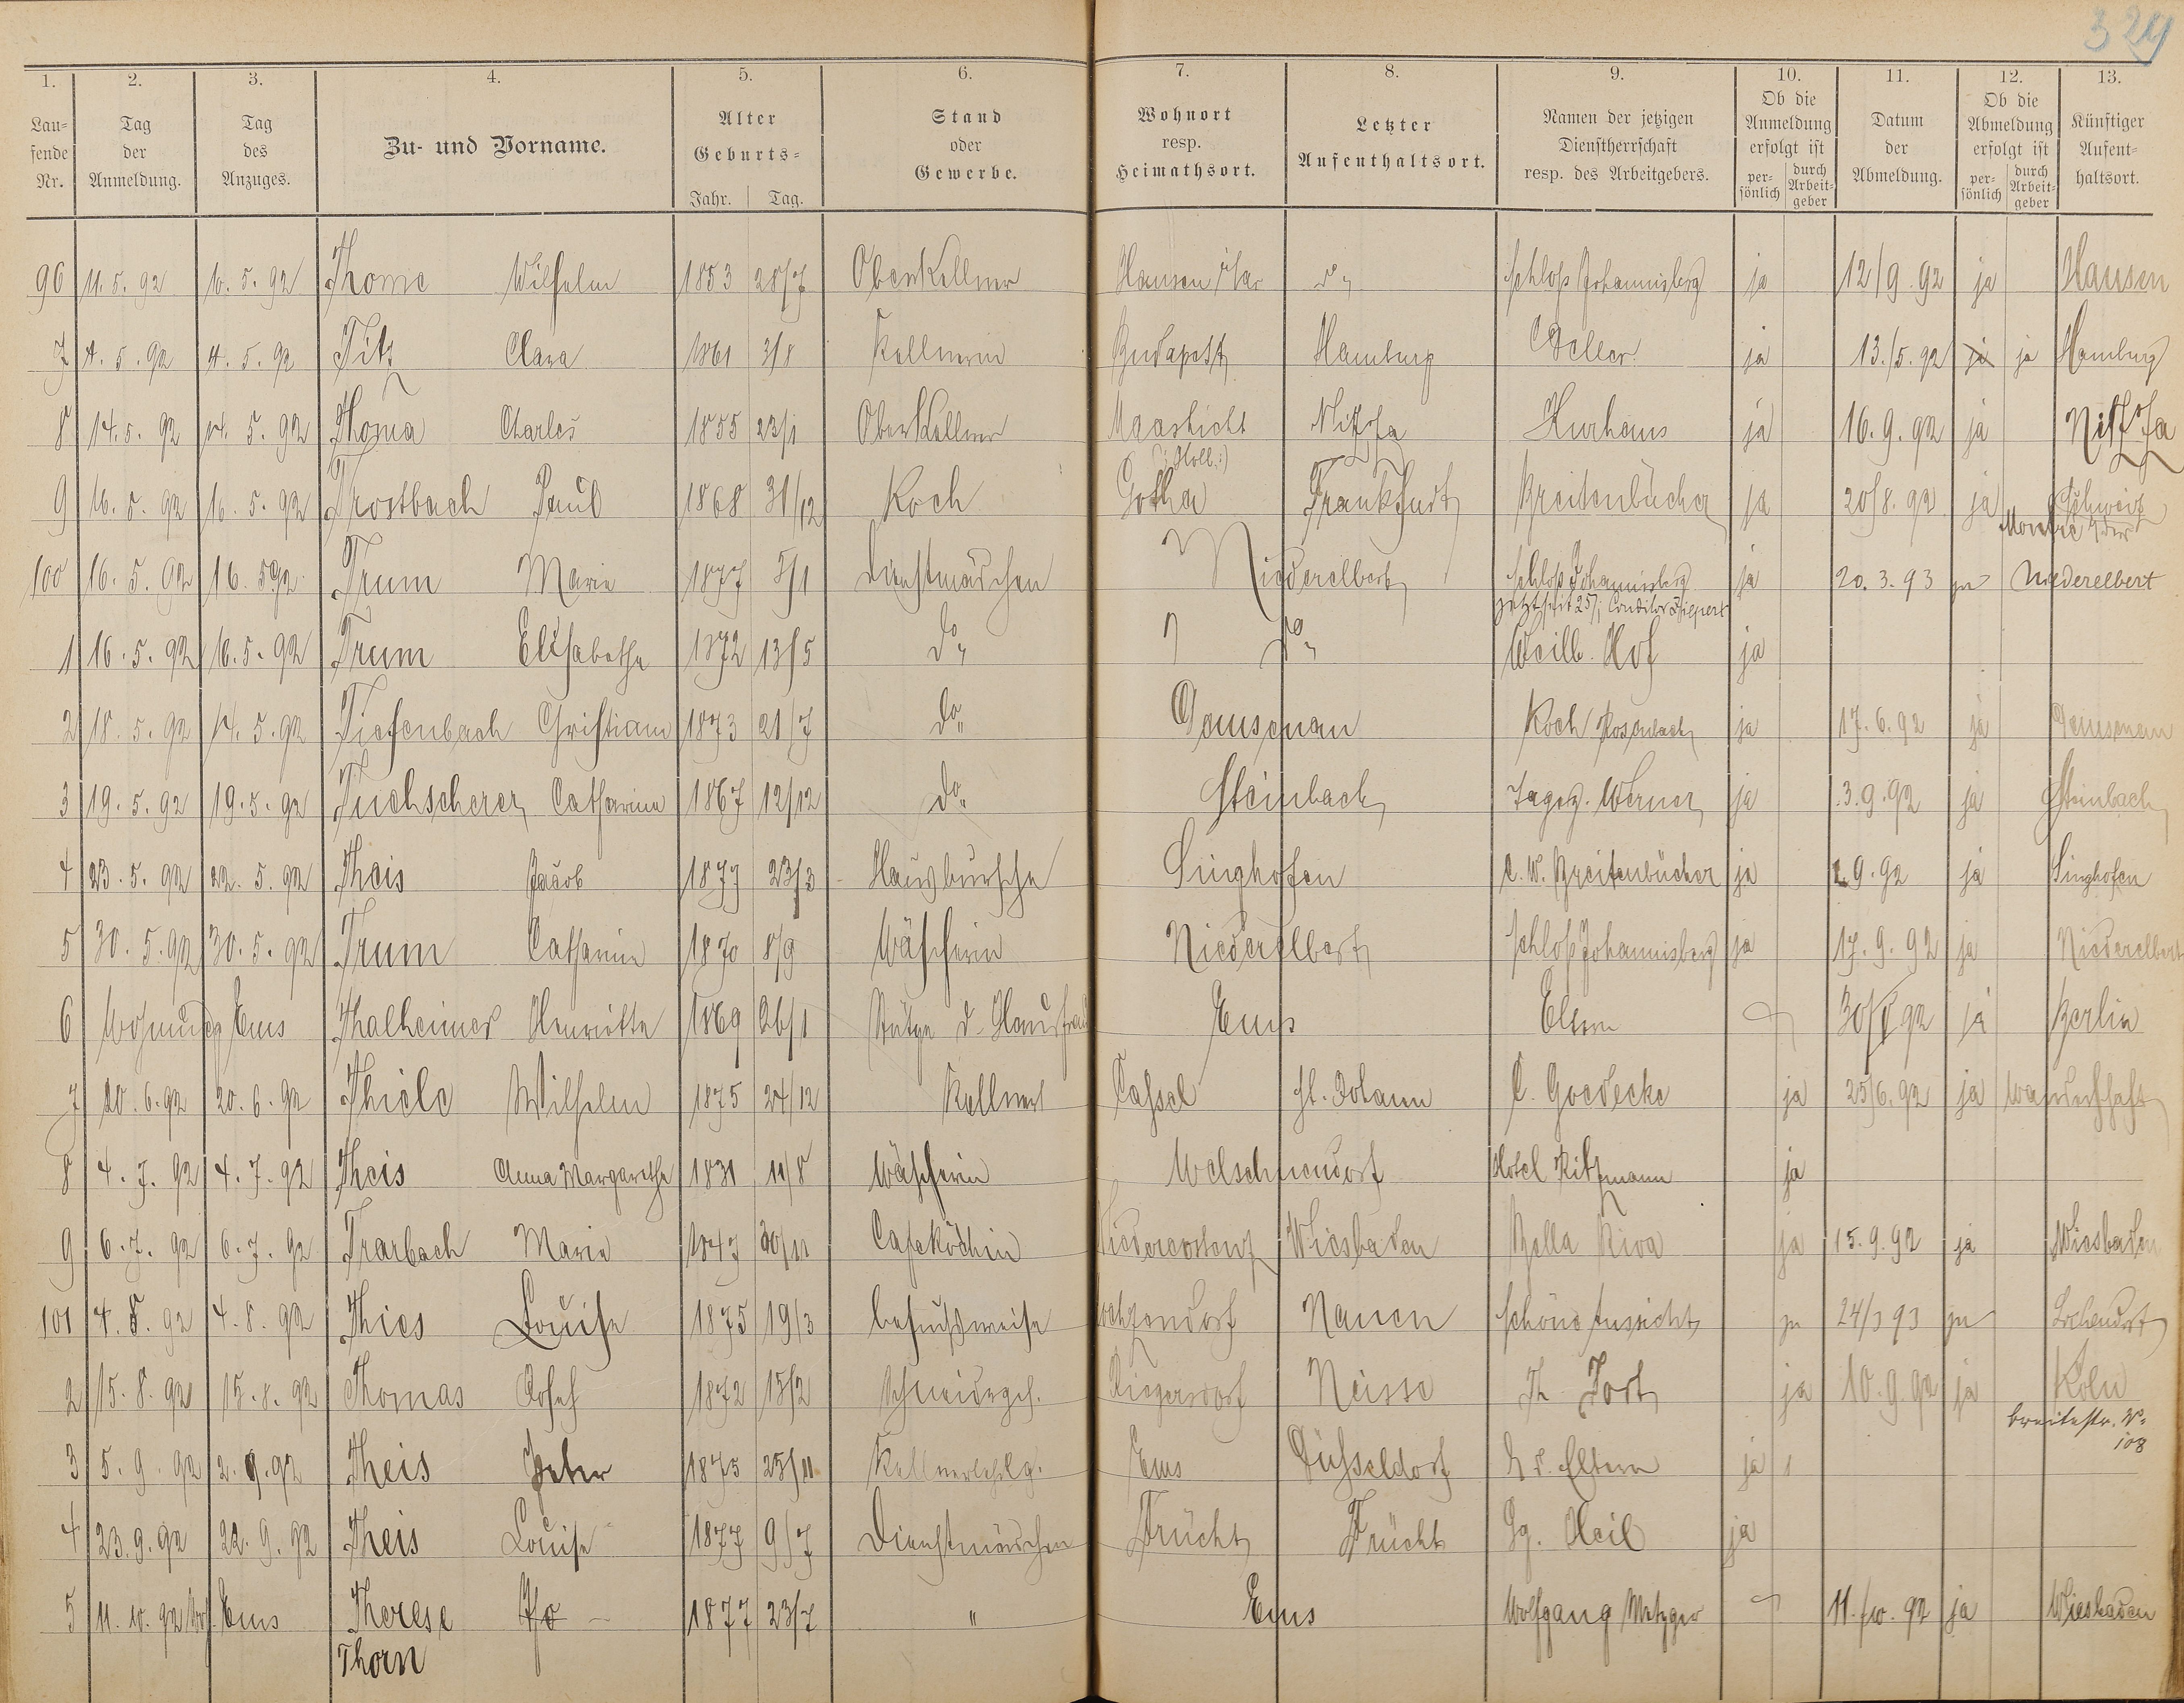 324
1. 2. 3. 4. 5. 6. 7. 8. 9. 10. 11. 12. 13.
Lau=
fende
Nr.
Tag
der
Anmeldung.
Tag
des
Anzuges.
Zu- und Vorname.
Alter
Geburts=
Jahr. Tag.
Stand
oder
Gewerbe.
Wohnort
resp.
Heimathsort.
Letzter
Aufenthaltsort.
Namen der jetzigen
Dienstherrschaft
resp. des Arbeitgebers.
Ob die
Anmeldung
erfolgt ist
per=
sönlich
durch
Arbeit=
geber
Datum
der
Abmeldung.
Ob die
Abmeldung
erfolgt ist
per=
sönlich
durch
Arbeit=
geber
Künftiger
Aufent=
haltsort.
96 11.5.92 10.5.92 Thome Wilhelm 1853 28/7 Oberkellner Hausen do Schloß Johannisberg ja 12/9.92 ja Hausen
7 4.5.92 4.5.92 Titz Clara 1861 3/8 Kellnerin Budapest Hamburg Beller ja 13./5.92 ja ja Hamburg
8 14.5.92 14.5.92 Thoma Charles 1855 23/1 Oberkellner Maastricht Nizza Kurhaus ja 16.9.92 ja Nizza
(: Holl. :)
9 16.5.92 16.5.92 Trostbach Paul 1868 31/12 Koch Gotha Frankfurt Breitenbücher ja 20/8.92 ja Schweiz
100 16.5.92 16.5.92 Trum Marie 1877 5/1 Dienstmädchen Niederelbert Schloß Johannisberg ja 20.3.93 ja Niederelbert
jetzt seit 25/ Conditor
1 16.5.92 16.5.92 Trum Elisabethe 1872 13/5 do " do Weilb. Hof ja
2 18.5.92 14.5.92 Tiefenbach Christiane 1873 21/7 do Dausenau Koch Rosenbach ja 17.6.92 ja Dausenau
3 19.5.92 19.5.92 Tuchscherer Catharina 1867 12/12 do Steinbach Werner ja 3.9.92 ja Steinbach
4 23.5.92 22.5.92 Theis Jacob 1877 23/3 Hausbursche Singhofen C. W. Breitenbücher ja 9.92 ja Singhofen
5 30.5.92 30.5.92 Trum Catharine 1870 8/9 Wäscherin Niederelbert Schloß Johannisberg ja 17.9.92 ja Niederelbert
6 Wohnung Ems Thalheimer Henriette 1869 26/1 Stütze d. Hausfrau Ems Eltern 92 ja Berlin
7 20.6.92 20.6.92 Thiele Wilhelm 1875 24/12 Kellner Cassel St. Johann C. Goedecke ja 25/6.92 ja Wanderschaft
8 4.7.92 4.7.92 Theis Anna Margarethe 1831 11/8 Wäscherin Welschneudorf Hotel Ritzmann ja
9 6.7.92 6.7.92 Trarbach Marie 1847 30/11 Cafeköchin Wiesbaden Bella Riva ja 15.9.92 ja Wiesbaden
101 4.8.92 4.8.92 Thies Louise 1875 19/3 besuchsweise Nauen Schöne Aussicht ja 24/3 93 ja
2 15.8.92 15.8.92 Thomas Josef 1872 15/2 Schneidergeh. Riegersdorf Neisse Th. Jost ja 10.9.92 ja Köln
breitestr. No.
108
3 5.9.92 2.9.92 Theis Peter 1875 25/11 Kellnerlehrlg. Ems Düsseldorf b. d. Eltern ja
4 23.9.92 22.9.92 Theis Louise 1877 9/7 Dienstmädchen Frücht Frücht Gg. Heil ja
5 11.10.92 Ems Therese 1877 23/7 " Ems Wolfgang Metzger 11./10.92 ja Wiesbaden
Thorn